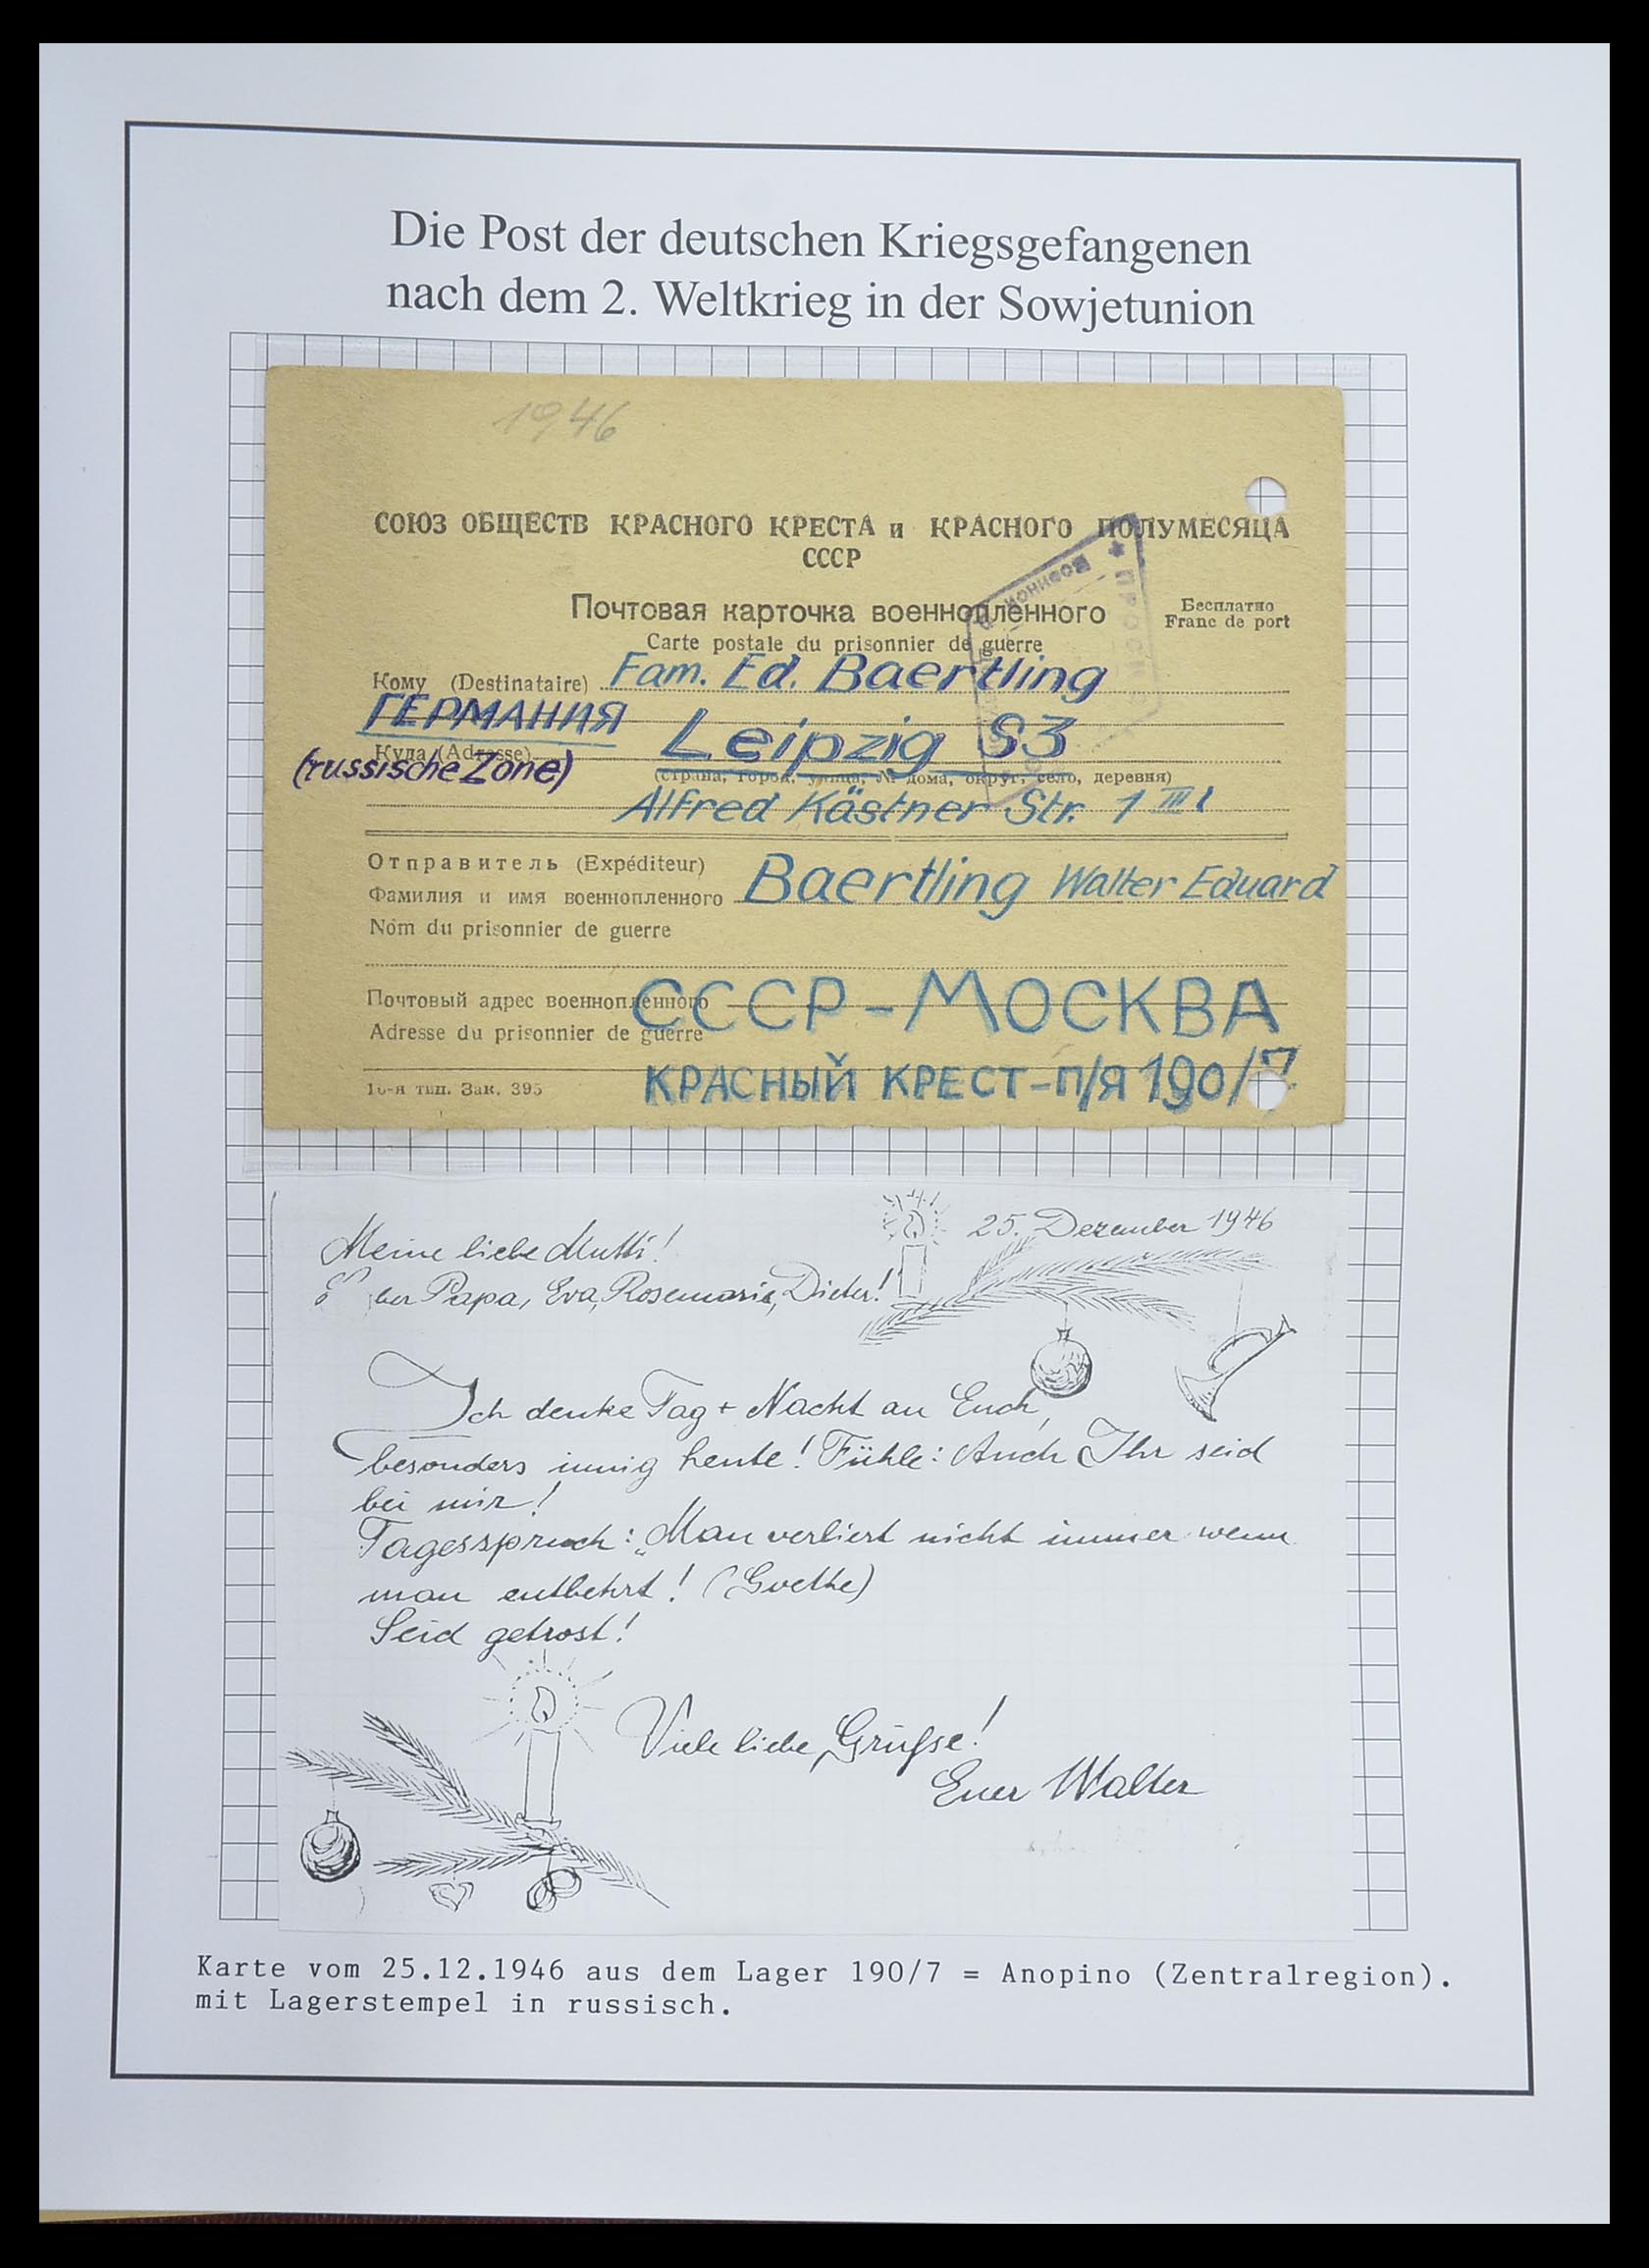 Die Post der deutschen Kriegsgefangenen
nach dem 2. Weltkrieg in der Sowjetunion
1946
СОЮЗ ОБЩЕСТВ КРАСНОГО КРЕСТА и КРАСНОГО ПОЛУМЕСЯЦА
СССР
Почтовая карточка военнопленного
Бесплатно
Franc de port
Carte postale du prisonnier de guerre
Кому (Destinataire) Fam. Ed. Baertling
ГЕРМАНИЯ
Leipzig S3
Куда (Adresse)
(russische Zone)
(страна, город, улица, № дома, округ, село, деревня)
Alfred Kästner Str. 1 III l
Отправитель (Expéditeur)
Фамилия и имя военнопленного Baertling Walter Eduard
Nom du prisonnier de guerre
Почтовый адрес военнопленного СССР-МОСКВА
Adresse du prisonnier de guerre
КРАСНЫЙ КРЕСТ-П/Я 190/7
16-я тип. Зак. 395
25. Dezember 1946
Meine liebe Mutti!
Papa, Eva, Rosemarie, Dieter!
Ich denke Tag + Nacht an Euch,
besonders innig heute! Fühle: Auch Ihr seid
bei mir!
Tagesspruch: „Man verliert nicht immer wenn
man entbehrt! (Goethe)
Seid getrost!
Viele liebe Grüße!
Euer Walter
Karte vom 25.12.1946 aus dem Lager 190/7 = Anopino (Zentralregion).
mit Lagerstempel in russisch.